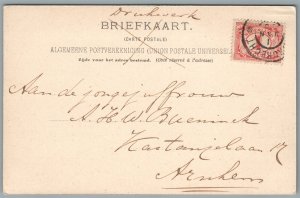 Drukwerk
BRIEFKAART.
(CARTE POSTALE)
ALGEMEENE POSTVEREENIGING (UNION POSTALE UNIVERSELLE)
Zijde voor het adres bestemd. (Côté réservé à l'adresse)
Aan de jongejuffrouw
A. H. W. Bueninck
Kastanjelaan 17
Arnhem